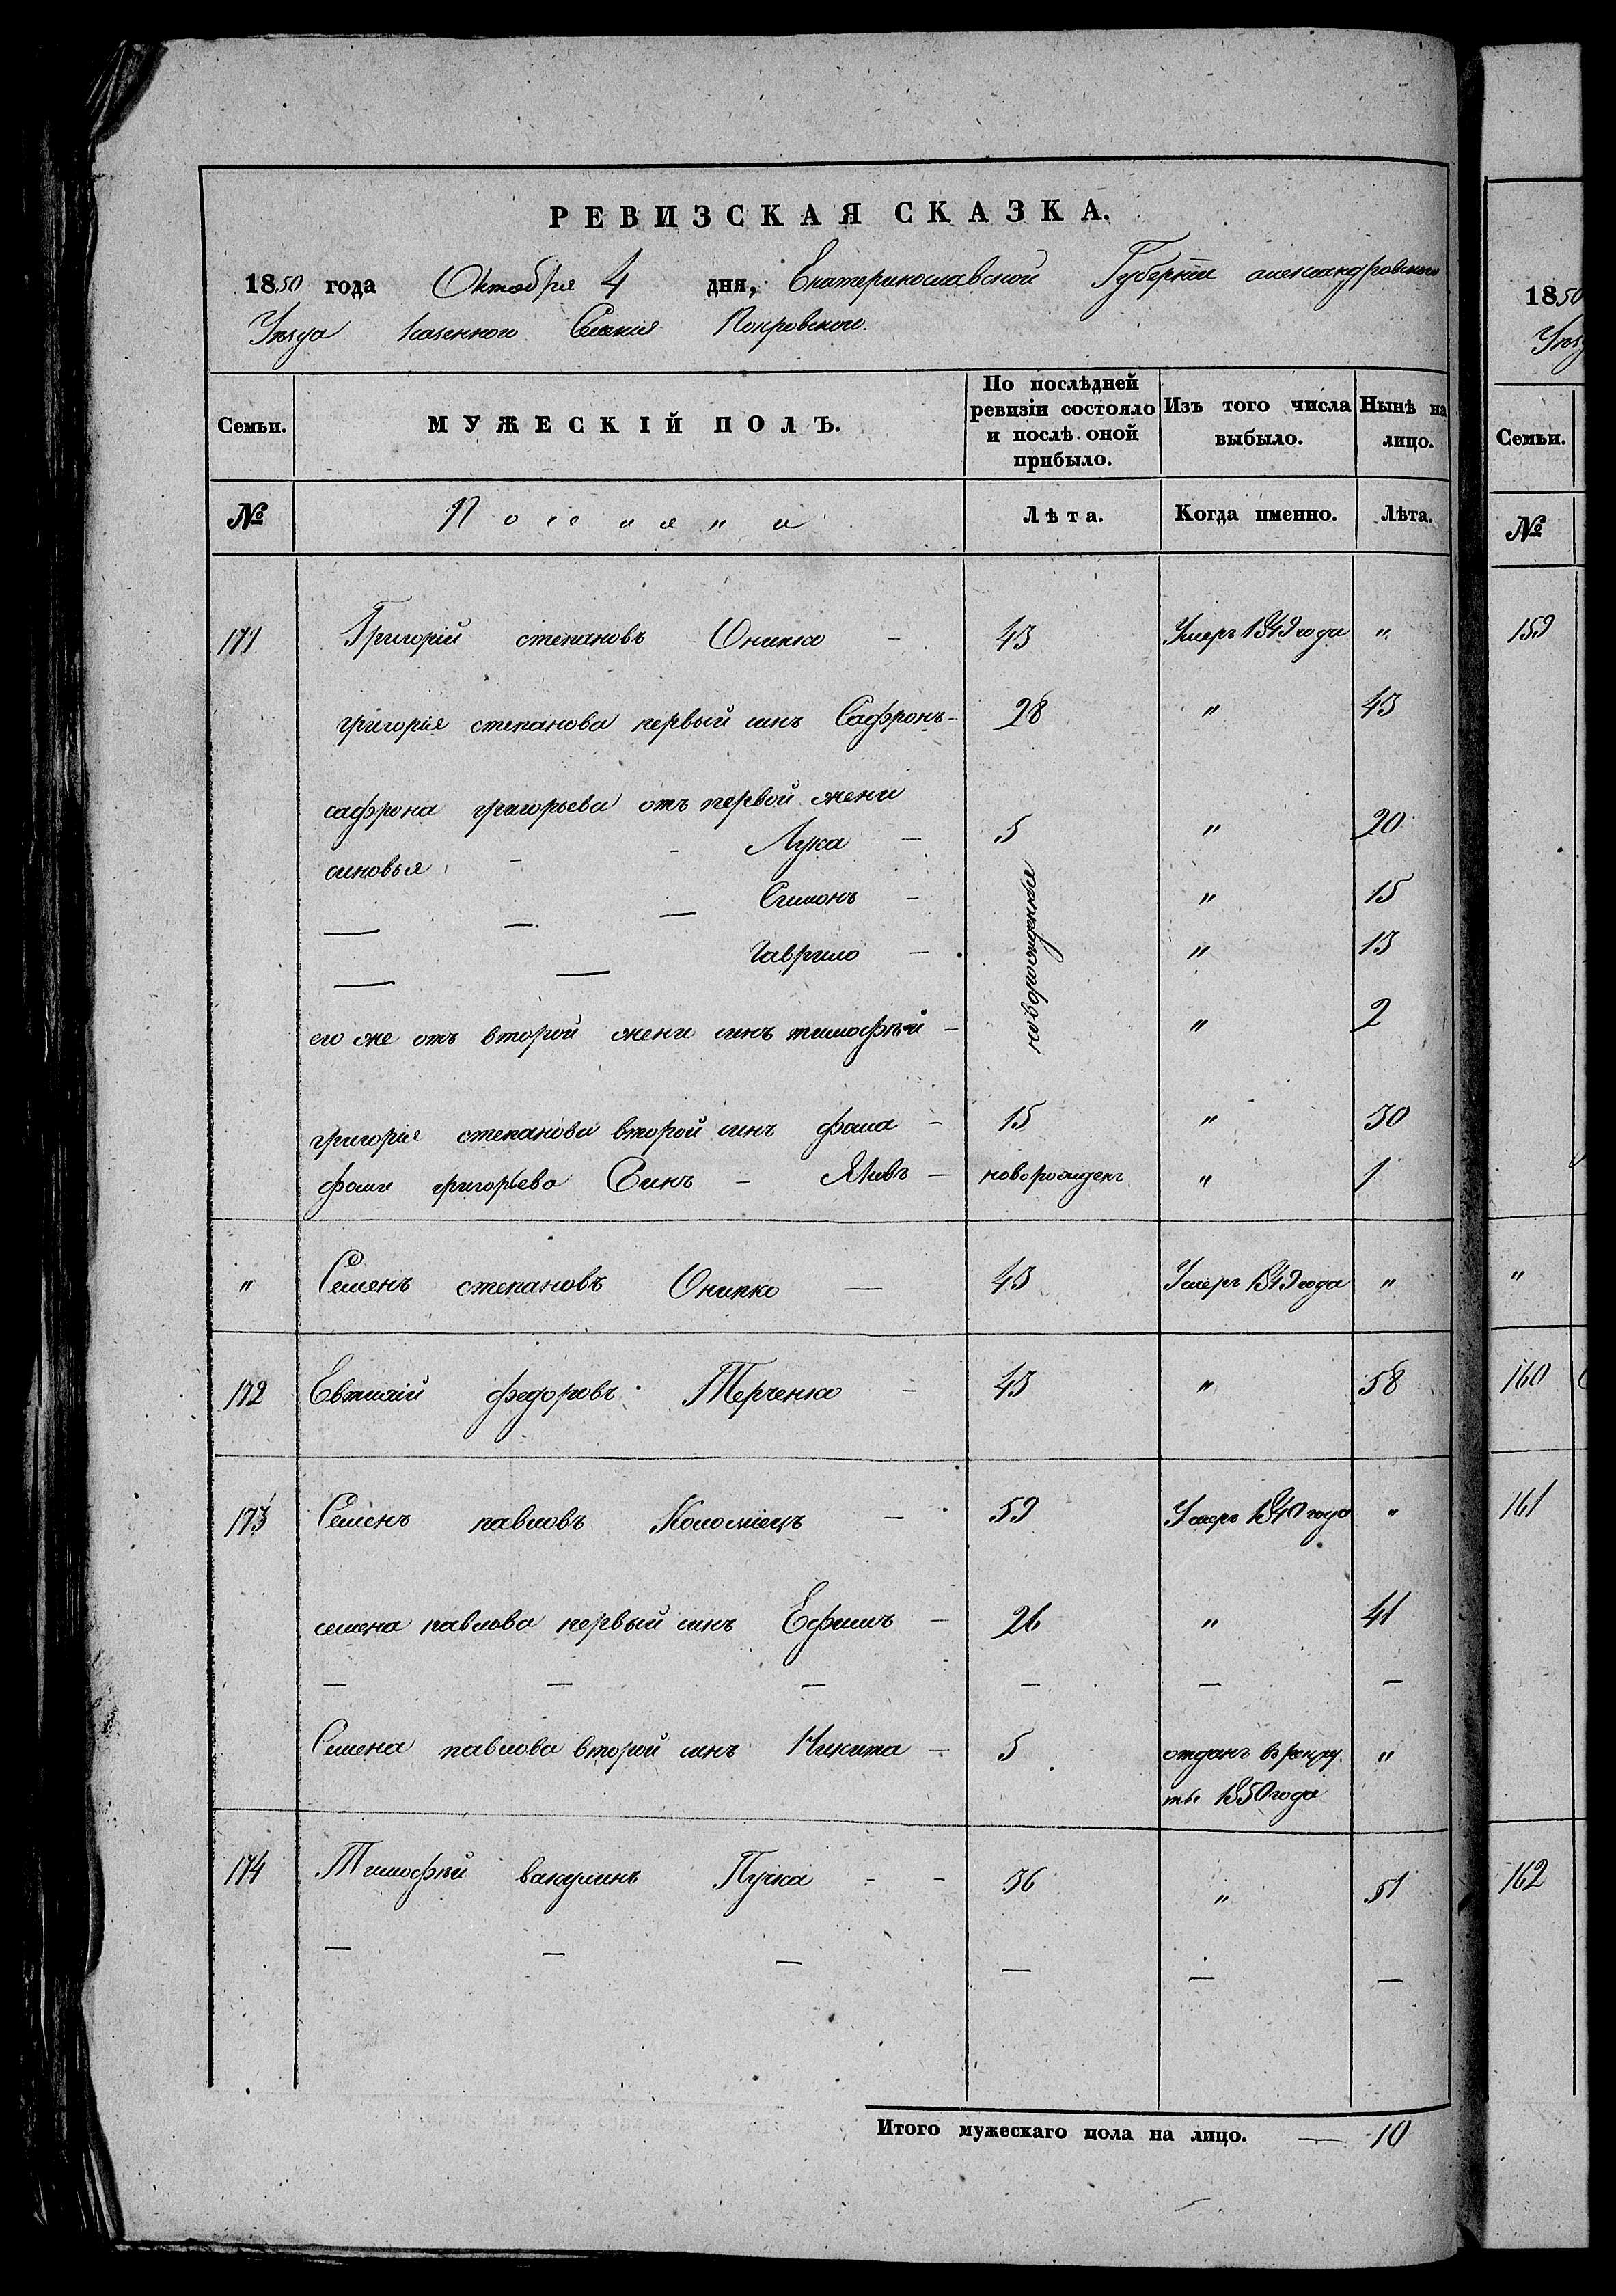 РЕВИЗСКАЯ СКАЗКА.
1850 года Октября 4 дня, Екатеринославской Губернiи александровского
Уезда казенного Селения Покровского.
Семьи. МУЖЕСКIЙ ПОЛЪ. По послѣдней ревизiи состояло и послѣ оной прибыло. Изъ того числа выбыло. Нынѣ на лицо.
№ Поселяни Лѣта. Когда именно. Лѣта.
171 Григорiй степановъ Онипко - 43 Умеръ 1849 года "
григорiя степанова первый синъ Сафронъ - 28 " 43
сафрона григорьева отъ первой жени
синовья - - Лука - 5 " 20
— — — Симонъ - новорожденные " 15
— — Гаврило - " 13
его же отъ второй жени синъ тимофѣй - " 2
григорiя степанова второй синъ фома - 15 " 30
фоми григорьева Синъ - Яковъ - новорожденъ " 1
" Семенъ степановъ Онипко — 43 Умеръ 1849 года "
172 Евтихiй федоровъ Терченко - 43 " 58
173 Семенъ павловъ Коломiецъ - 59 Умеръ 1840 года "
семена павлова первый синъ Ефимъ - 26 " 41
— — — — — —
Семена павлова второй синъ Никита - 5 отданъ в рекру "
ты 1850 года
174 Тимофѣй вакулинъ Пучка - - 36 " 51
— — — — — —
Итого мужескаго пола на лицо. — 10
1850
Уез
Семьи.
№
159
"
160
161
162